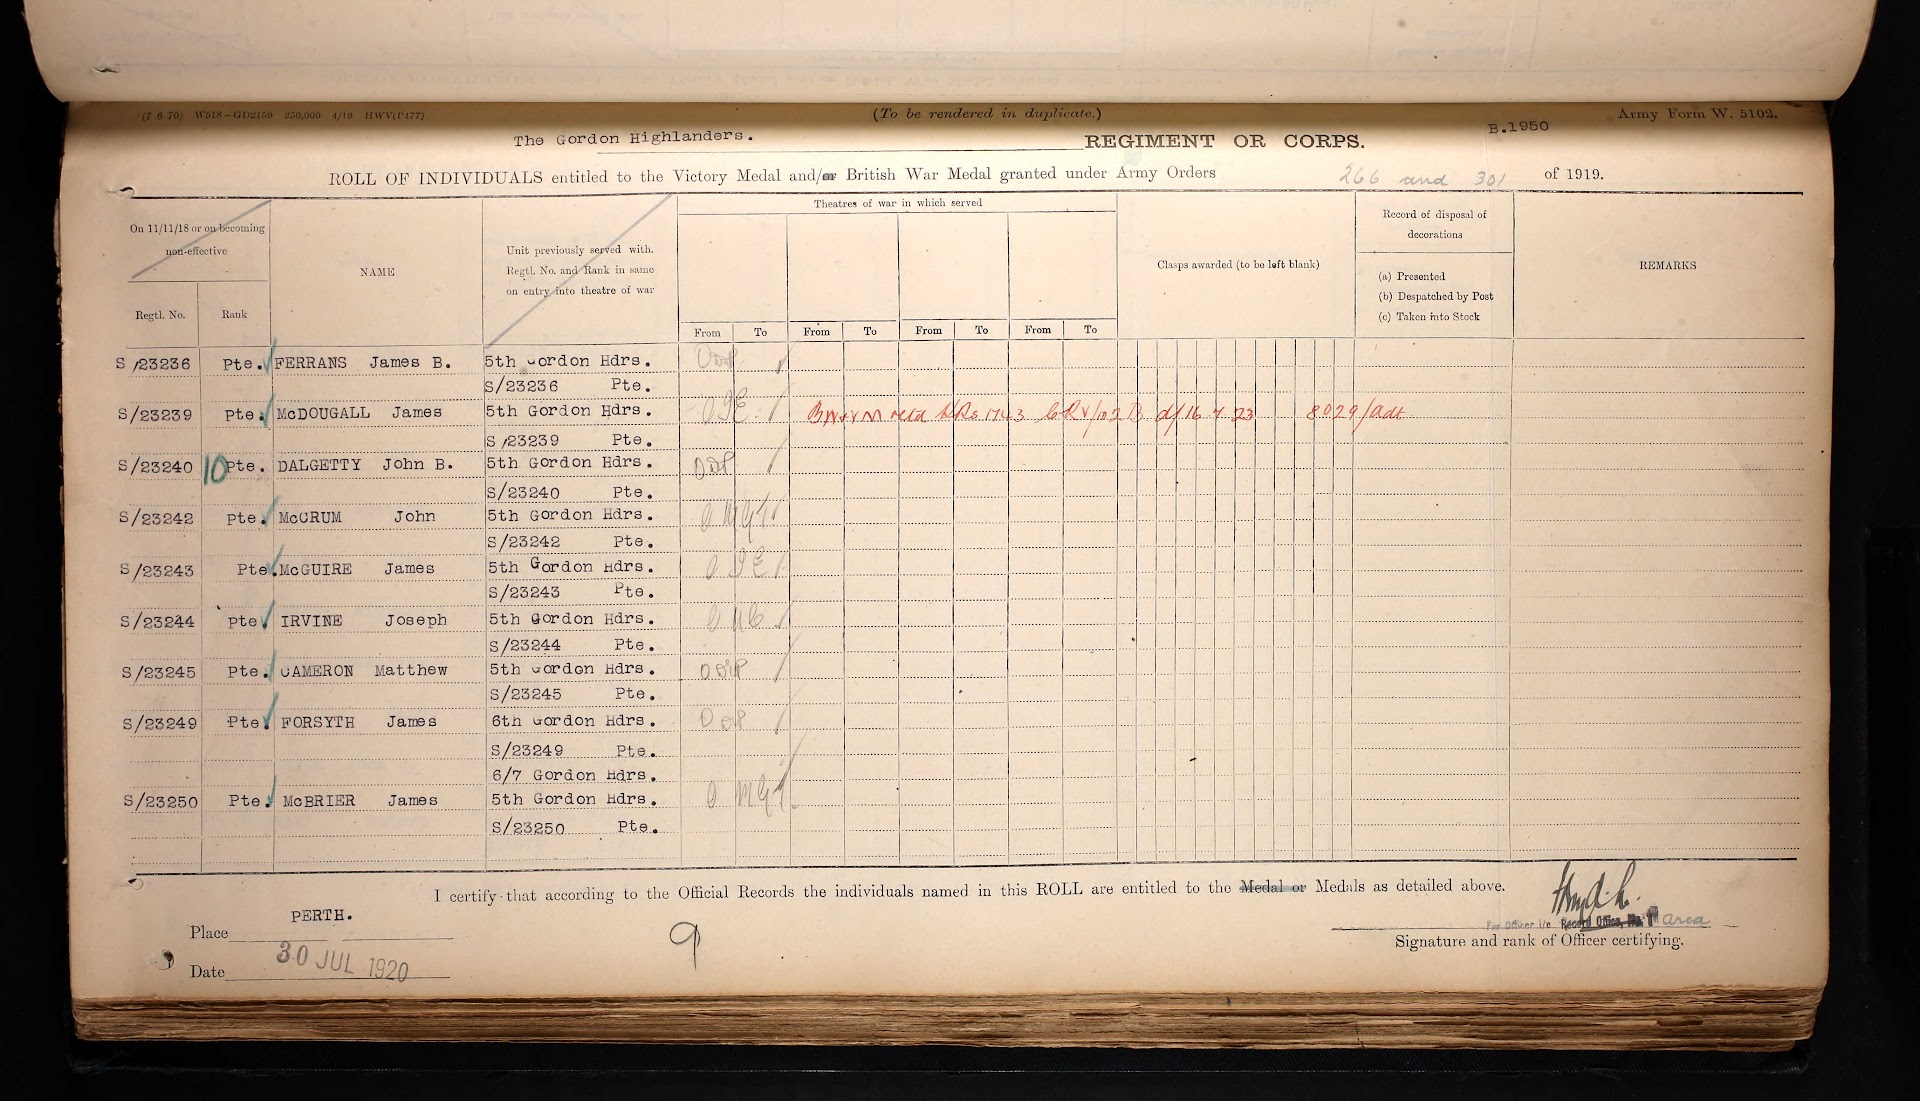 (7 6 70) W518-GD2159 250,000 4/19 HWV(P477)
(To be rendered in duplicate.)
Army Form W. 5102.
B.1950
The Gordon Highlanders. REGIMENT OR CORPS.
ROLL OF INDIVIDUALS entitled to the Victory Medal and/or British War Medal granted under Army Orders 266 and 301 of 1919.
On 11/11/18 or on becoming non-effective
Regtl. No.
Rank
NAME
Unit previously served with.
Regtl. No. and Rank in same
on entry into theatre of war
Theatres of war in which served
From To From To From To From To
Clasps awarded (to be left blank)
Record of disposal of decorations
(a) Presented
(b) Despatched by Post
(c) Taken into Stock
REMARKS
S/23236 Pte. FERRANS James B. 5th Gordon Hdrs.
S/23236 Pte.
S/23239 Pte. McDOUGALL James 5th Gordon Hdrs. 8029/Adt
S/23239 Pte.
S/23240 10 Pte. DALGETTY John B. 5th Gordon Hdrs.
S/23240 Pte.
S/23242 Pte. McCRUM John 5th Gordon Hdrs.
S/23242 Pte.
S/23243 Pte. McGUIRE James 5th Gordon Hdrs.
S/23243 Pte.
S/23244 Pte. IRVINE Joseph 5th Gordon Hdrs.
S/23244 Pte.
S/23245 Pte. CAMERON Matthew 5th Gordon Hdrs.
S/23245 Pte.
S/23249 Pte. FORSYTH James 6th Gordon Hdrs.
S/23249 Pte.
6/7 Gordon Hdrs.
S/23250 Pte. McBRIER James 5th Gordon Hdrs.
S/23250 Pte.
I certify that according to the Official Records the individuals named in this ROLL are entitled to the Medal or Medals as detailed above.
Place PERTH.
Date 30 JUL 1920
9
For Officer i/c Record Office, No. 1 area
Signature and rank of Officer certifying.